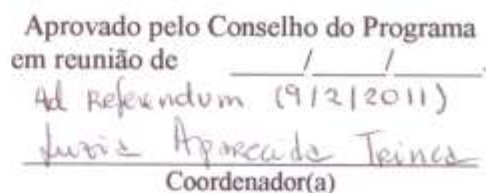 Aprovado pelo Conselho do Programa
em reunião de ____/____/____.
Ad Referendum (9/2/2011)
Luzia Aparecida Trinca
Coordenador(a)